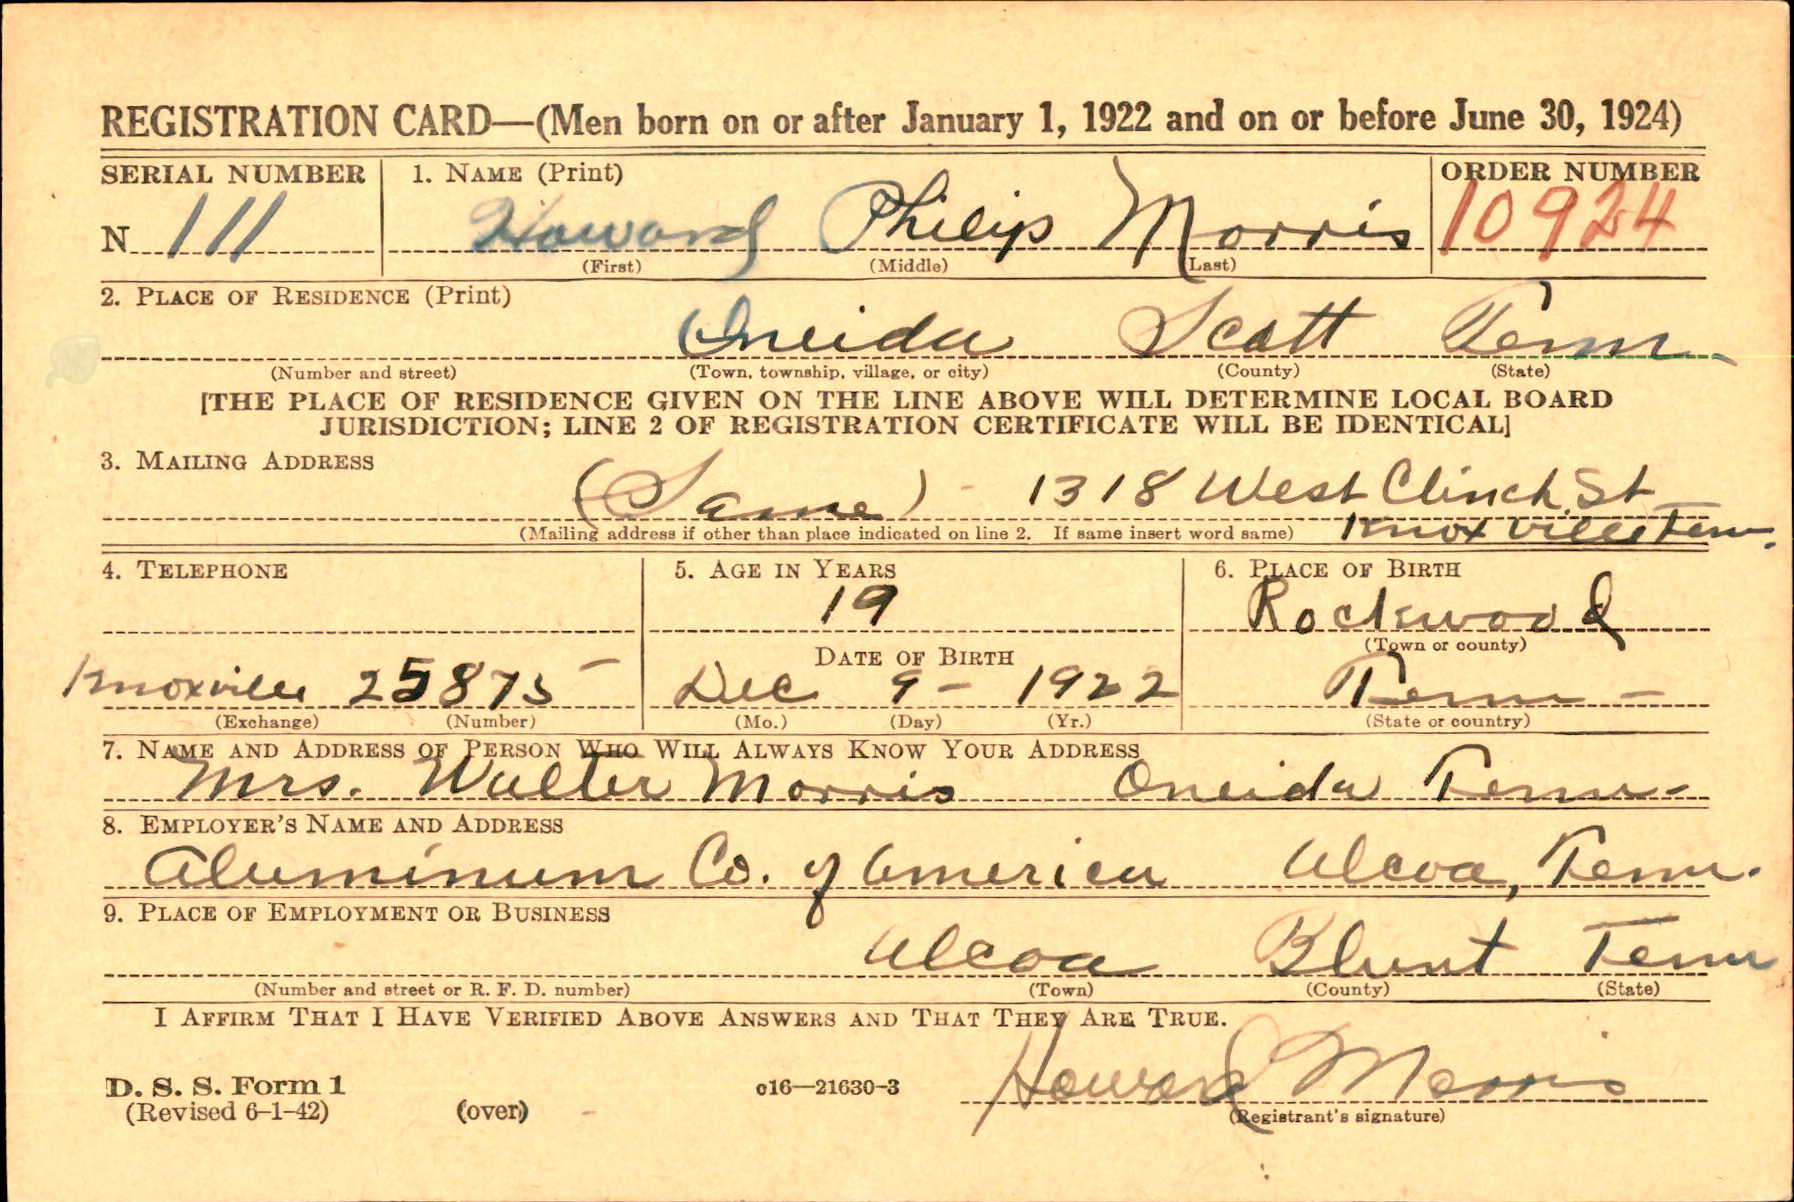 REGISTRATION CARD—(Men born on or after January 1, 1922 and on or before June 30, 1924)
SERIAL NUMBER 1. NAME (Print) ORDER NUMBER
N 111 Howard Philip Morris 10924
(First) (Middle) (Last)
2. PLACE OF RESIDENCE (Print)
Oneida Scott Tenn.
(Number and street) (Town, township, village, or city) (County) (State)
[THE PLACE OF RESIDENCE GIVEN ON THE LINE ABOVE WILL DETERMINE LOCAL BOARD
JURISDICTION; LINE 2 OF REGISTRATION CERTIFICATE WILL BE IDENTICAL]
3. MAILING ADDRESS
(Same) - 1318 West Clinch. St
(Mailing address if other than place indicated on line 2. If same insert word same) Knoxville Tenn.
4. TELEPHONE 5. AGE IN YEARS 6. PLACE OF BIRTH
19 Rockwood
(Town or county)
DATE OF BIRTH
Knoxville 25875 - Dec 9 - 1922 Tenn -
(Exchange) (Number) (Mo.) (Day) (Yr.) (State or country)
7. NAME AND ADDRESS OF PERSON WHO WILL ALWAYS KNOW YOUR ADDRESS
Mrs. Walter Morris Oneida Tenn-
8. EMPLOYER'S NAME AND ADDRESS
Aluminum Co. of America Alcoa, Tenn.
9. PLACE OF EMPLOYMENT OR BUSINESS
Alcoa Blunt Tenn
(Number and street or R. F. D. number) (Town) (County) (State)
I AFFIRM THAT I HAVE VERIFIED ABOVE ANSWERS AND THAT THEY ARE TRUE.
D. S. S. Form 1 c16—21630-3 Howard Morris
(Revised 6-1-42) (over) (Registrant's signature)